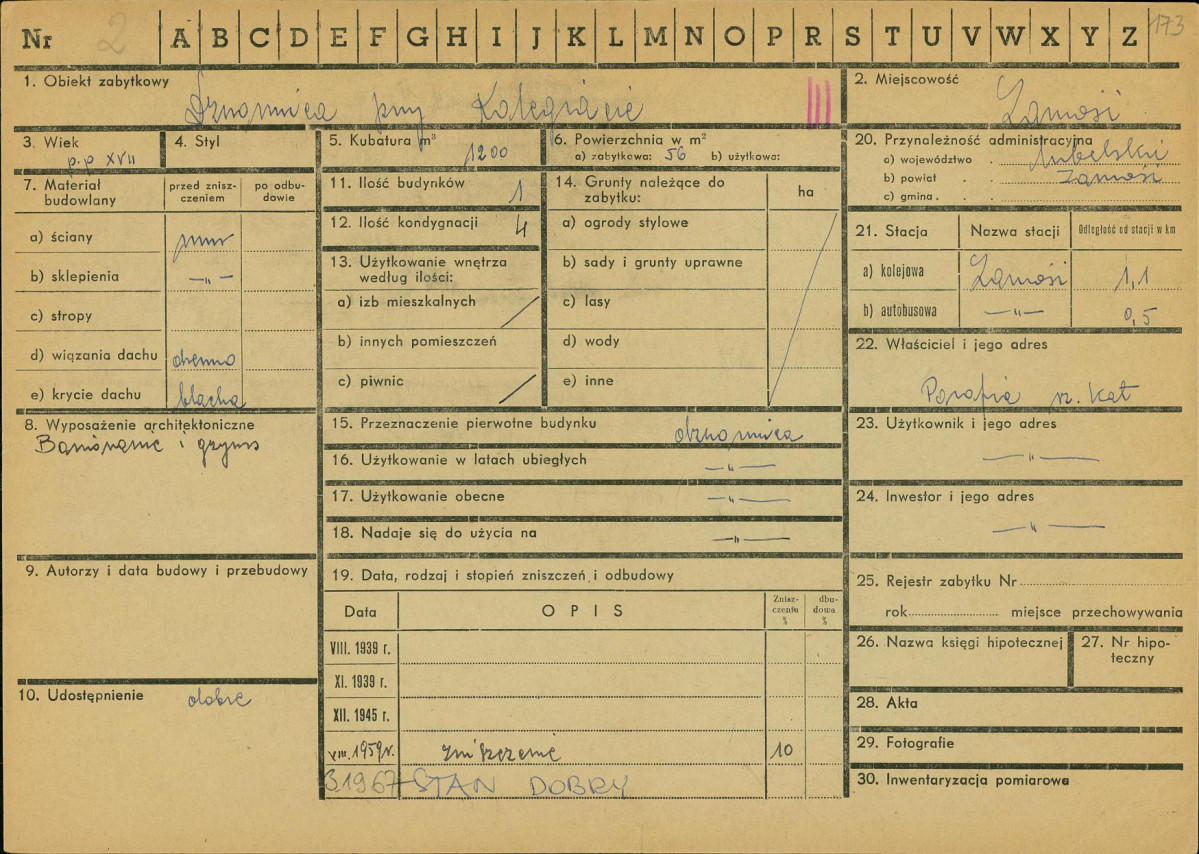 Nr 2 A B C D E F G H I J K L M N O P R S T U V W X Y Z 173
1. Obiekt zabytkowy
Dzwonnica przy Kolegiacie
2. Miejscowość
Zamość
3. Wiek
p.p XVII
4. Styl
5. Kubatura m³
1200
6. Powierzchnia w m²
a) zabytkowa: 56 b) użytkowa:
7. Materiał budowlany
przed zniszczeniem
po odbudowie
a) ściany mur
b) sklepienia —"—
c) stropy
d) wiązania dachu drewno
e) krycie dachu blacha
8. Wyposażenie architektoniczne
Boniowanie i gzyms
9. Autorzy i data budowy i przebudowy
10. Udostępnienie dobre
11. Ilość budynków 1
12. Ilość kondygnacji 4
13. Użytkowanie wnętrza
według ilości:
a) izb mieszkalnych
b) innych pomieszczeń
c) piwnic
14. Grunty należące do
zabytku:
ha
a) ogrody stylowe
b) sady i grunty uprawne
c) lasy
d) wody
e) inne
15. Przeznaczenie pierwotne budynku dzwonnica
16. Użytkowanie w latach ubiegłych —"—
17. Użytkowanie obecne —"—
18. Nadaje się do użycia na —"—
19. Data, rodzaj i stopień zniszczeń i odbudowy
Data OPIS Zniszczenia % dbudowa %
VIII. 1939 r.
XI. 1939 r.
XII. 1945 r.
VIII. 1959 r. zniszczenie 10
3 1967 STAN DOBRY
20. Przynależność administracyjna
a) województwo . lubelskie
b) powiat . . Zamość
c) gmina . . .
21. Stacja Nazwa stacji Odległość od stacji w km
a) kolejowa Zamość 1,1
b) autobusowa —"— 0,5
22. Właściciel i jego adres
Parafia rz. kat
23. Użytkownik i jego adres
—"—
24. Inwestor i jego adres
—"—
25. Rejestr zabytku Nr
rok miejsce przechowywania
26. Nazwa księgi hipotecznej
27. Nr hipoteczny
28. Akta
29. Fotografie
30. Inwentaryzacja pomiarowa